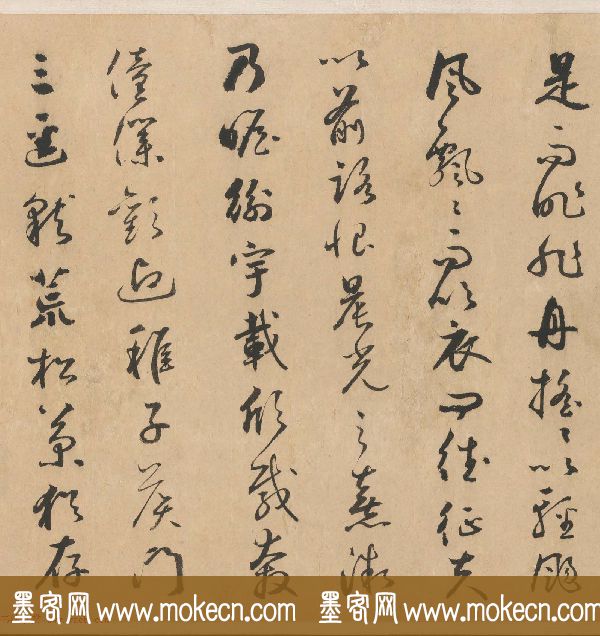 是而昨非舟搖〻以輕颺
風飄〻而吹衣問征夫
以前路恨晨光之熹微
乃瞻衡宇載欣載奔
僮僕歡迎稚子候門
三逕就荒松菊猶存
墨客网 www.mokecn.com 墨客网 www.mokecn.com